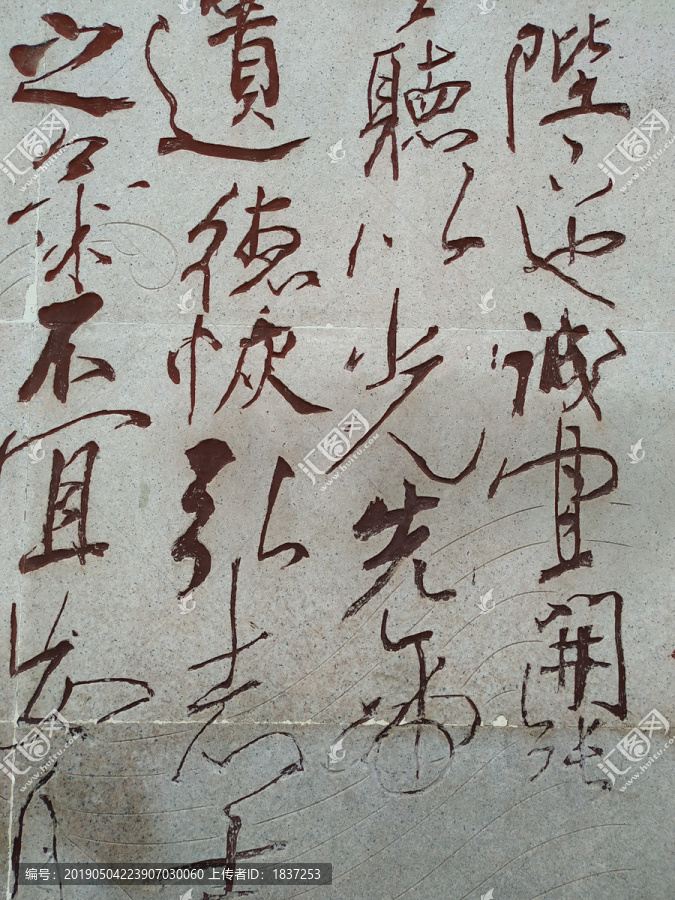 陛下也誠宜開張
聽以光先帝
遺德恢弘志士
之氣不宜妄自
汇图网
www.huitu.com
编号：20190504223907030060 上传者ID：1837253